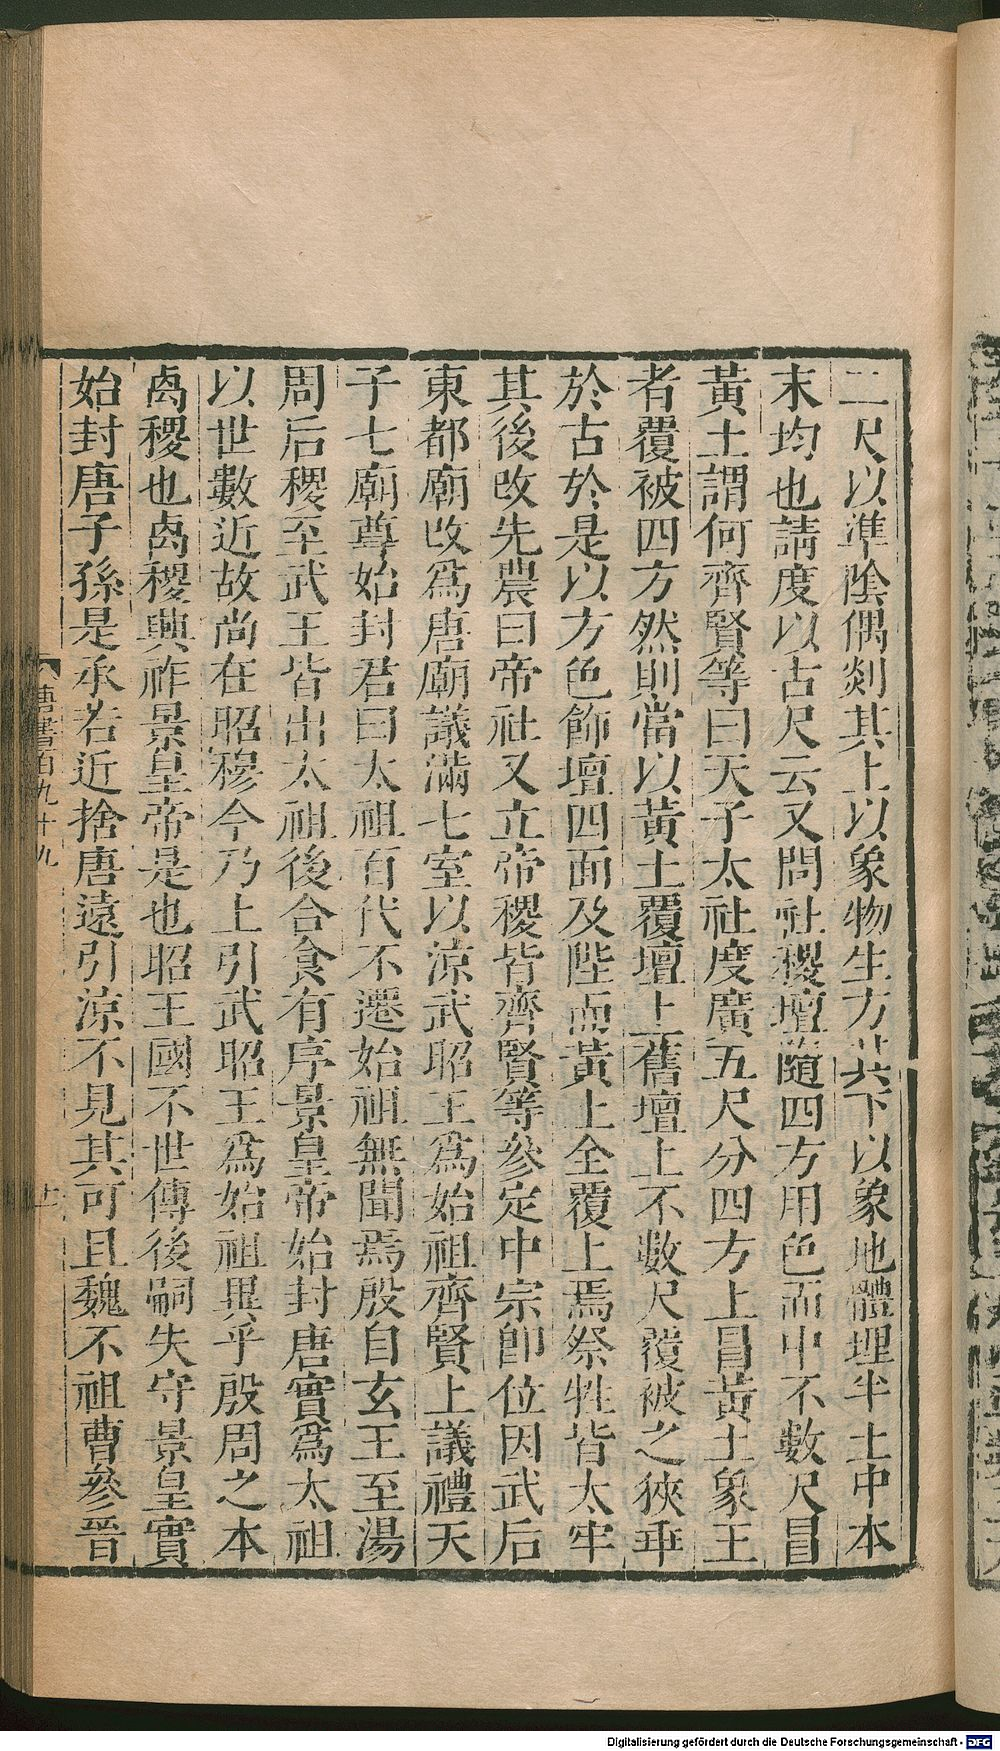 二尺以準陰偶剡其上以象物生方其下以象地體埋半土中本
末均也請度以古尺云又問社稷壇隨四方用色而中不數尺冒
黃土謂何齊賢等曰天子太社度廣五尺分四方上冒黃土象王
者覆被四方然則當以黃土覆壇上舊壇上不數尺覆被之狹乖
於古於是以方色飾壇四面及陛而黃土全覆上焉祭牲皆太牢
其後改先農曰帝社又立帝稷皆齊賢等參定中宗卽位因武后
東都廟改爲唐廟議滿七室以涼武昭王爲始祖齊賢上議禮天
子七廟尊始封君曰太祖百代不遷始祖無聞焉殷自玄王至湯
周后稷至武王皆出太祖後合食有序景皇帝始封唐實爲太祖
以世數近故尚在昭穆今乃上引武昭王爲始祖異乎殷周之本
卨稷也卨稷興祚景皇帝是也昭王國不世傳後嗣失守景皇實
始封唐子孫是承若近捨唐遠引涼不見其可且魏不祖曹參晉
唐書百九十九
十一
Digitalisierung gefördert durch die Deutsche Forschungsgemeinschaft - DFG